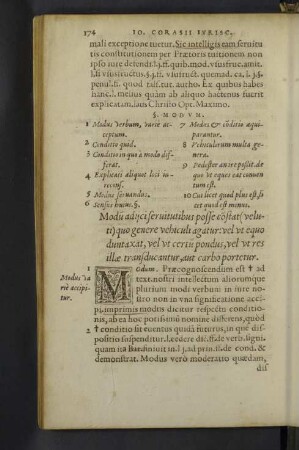 174 IO. CORASII IVRISC.
mali exceptione tuetur. Sic intelligis eam seruitu
tis constitutionem per Prætoris tuitionem non
ipso iure defendi. l.j. ff. quib. mod. vsusfruc. amit.
l.si vsusfructus. §.j. ff. vsufruct. quemad. ca. l. j. §.
Ex quibus habes
melius quàm ab aliquo hactenus fuerit
explicatam, laus Christo Opt. Maximo.
§. MODVM.
1 Modus verbum, variè acceptum.
2 Conditio quid.
3 Conditio in quo à modo differat.
4 Explicati aliquot loci iuris.
5 Modus seruandus.
6 Sensus huius. §.
7 Modus & cōditio æquiparantur.
8 Vehiculorum multa genera.
9
10 Cui licet quod plus est, licet quod est minus.
Modū adijci seruitutibus posse cōstat (veluti)
quo genere vehiculi agatur: vel vt equo
dūtaxat, vel vt certū pondus, vel vt res
illæ transducantur, aut carbo portetur.
1
Modus variè accipitur.
MOdum. Præcognoscendum est † ad
text. nostri intellectum aliorumque
plurium modi verbum in iure nostro
non in vna significatione accipi,
imprimis modus dicitur respectu conditionis,
ab ea hoc potissimùm nomine differens, quòd
2 † conditio sit euentus quidā futurus, in quem dispositio
suspenditur. l.cedere diē. ff. de verb. signi.
quam na Bar. finiuit in l. j. ad prin. ff. de cond. &
demonstrat. Modus verò moderatio quædam,
dis